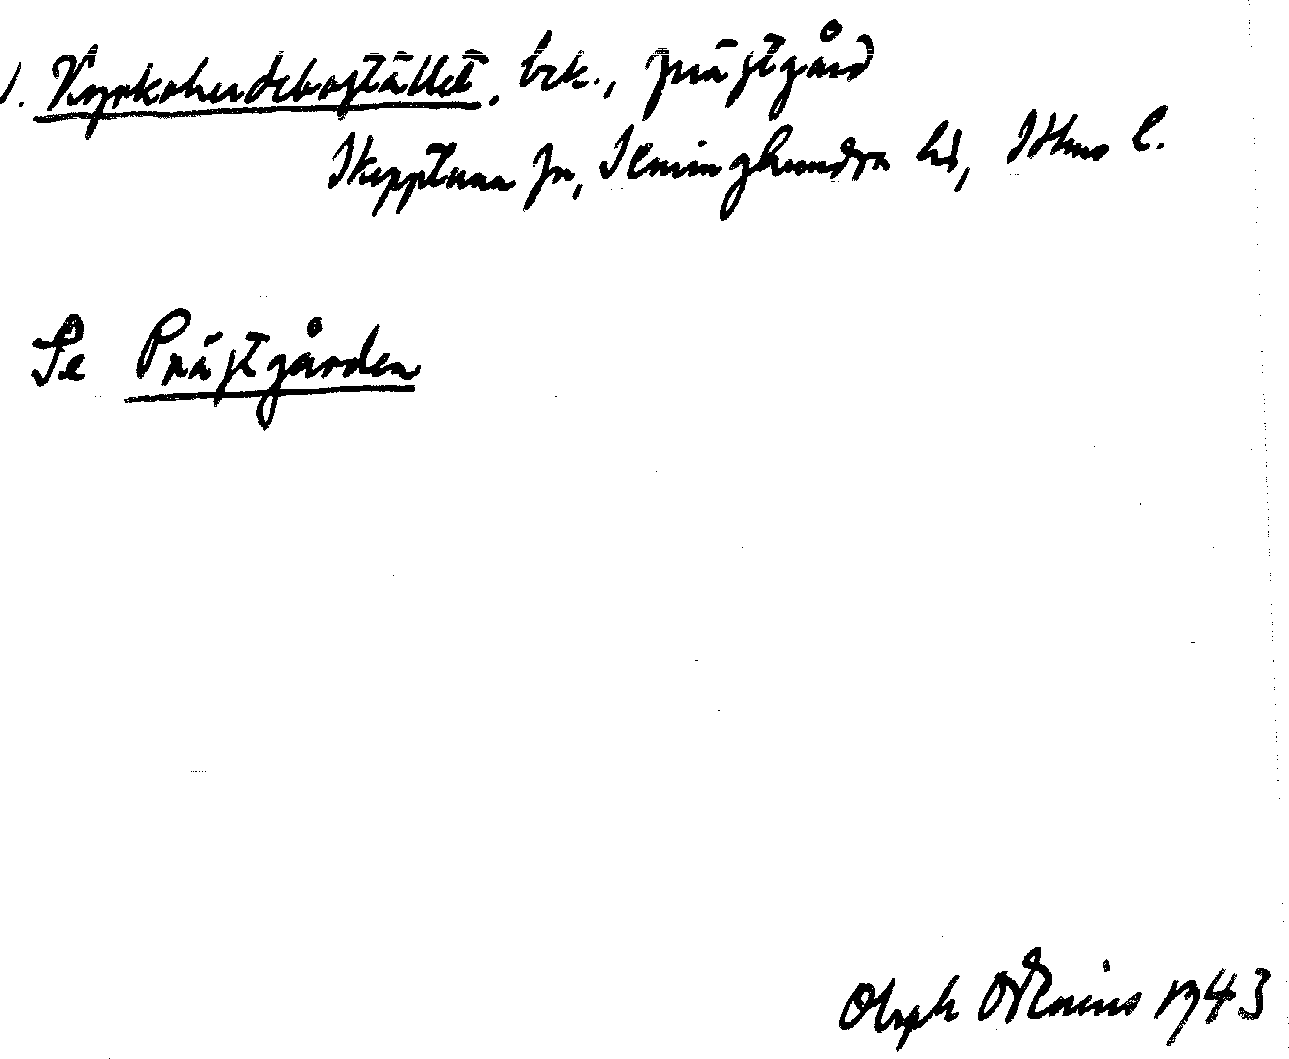 1. Kyrkoherdebostället, bek., prästgård
Skepptuna sn, Seminghundra hd, Sthms l.
Se Prästgården
Oloph Odenius 1943